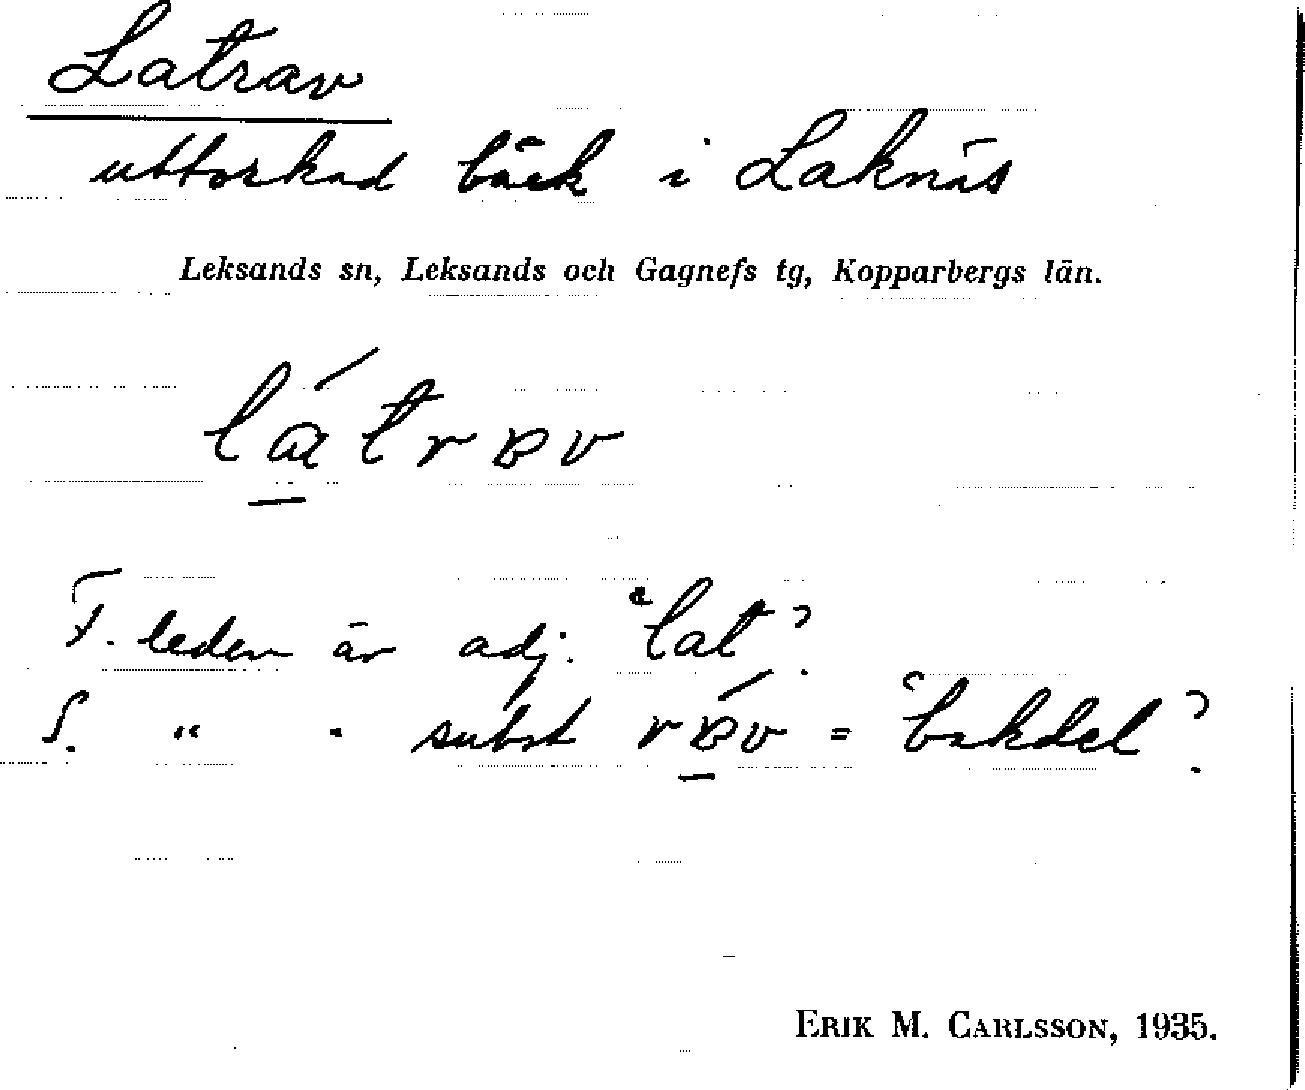 Latrav
uttorkad bäck i Laknäs
Leksands sn, Leksands och Gagnefs tg, Kopparbergs län.
F. leden är adj. "lat".
S. " - subst = "bakdel".
ERIK M. CARLSSON, 1935.